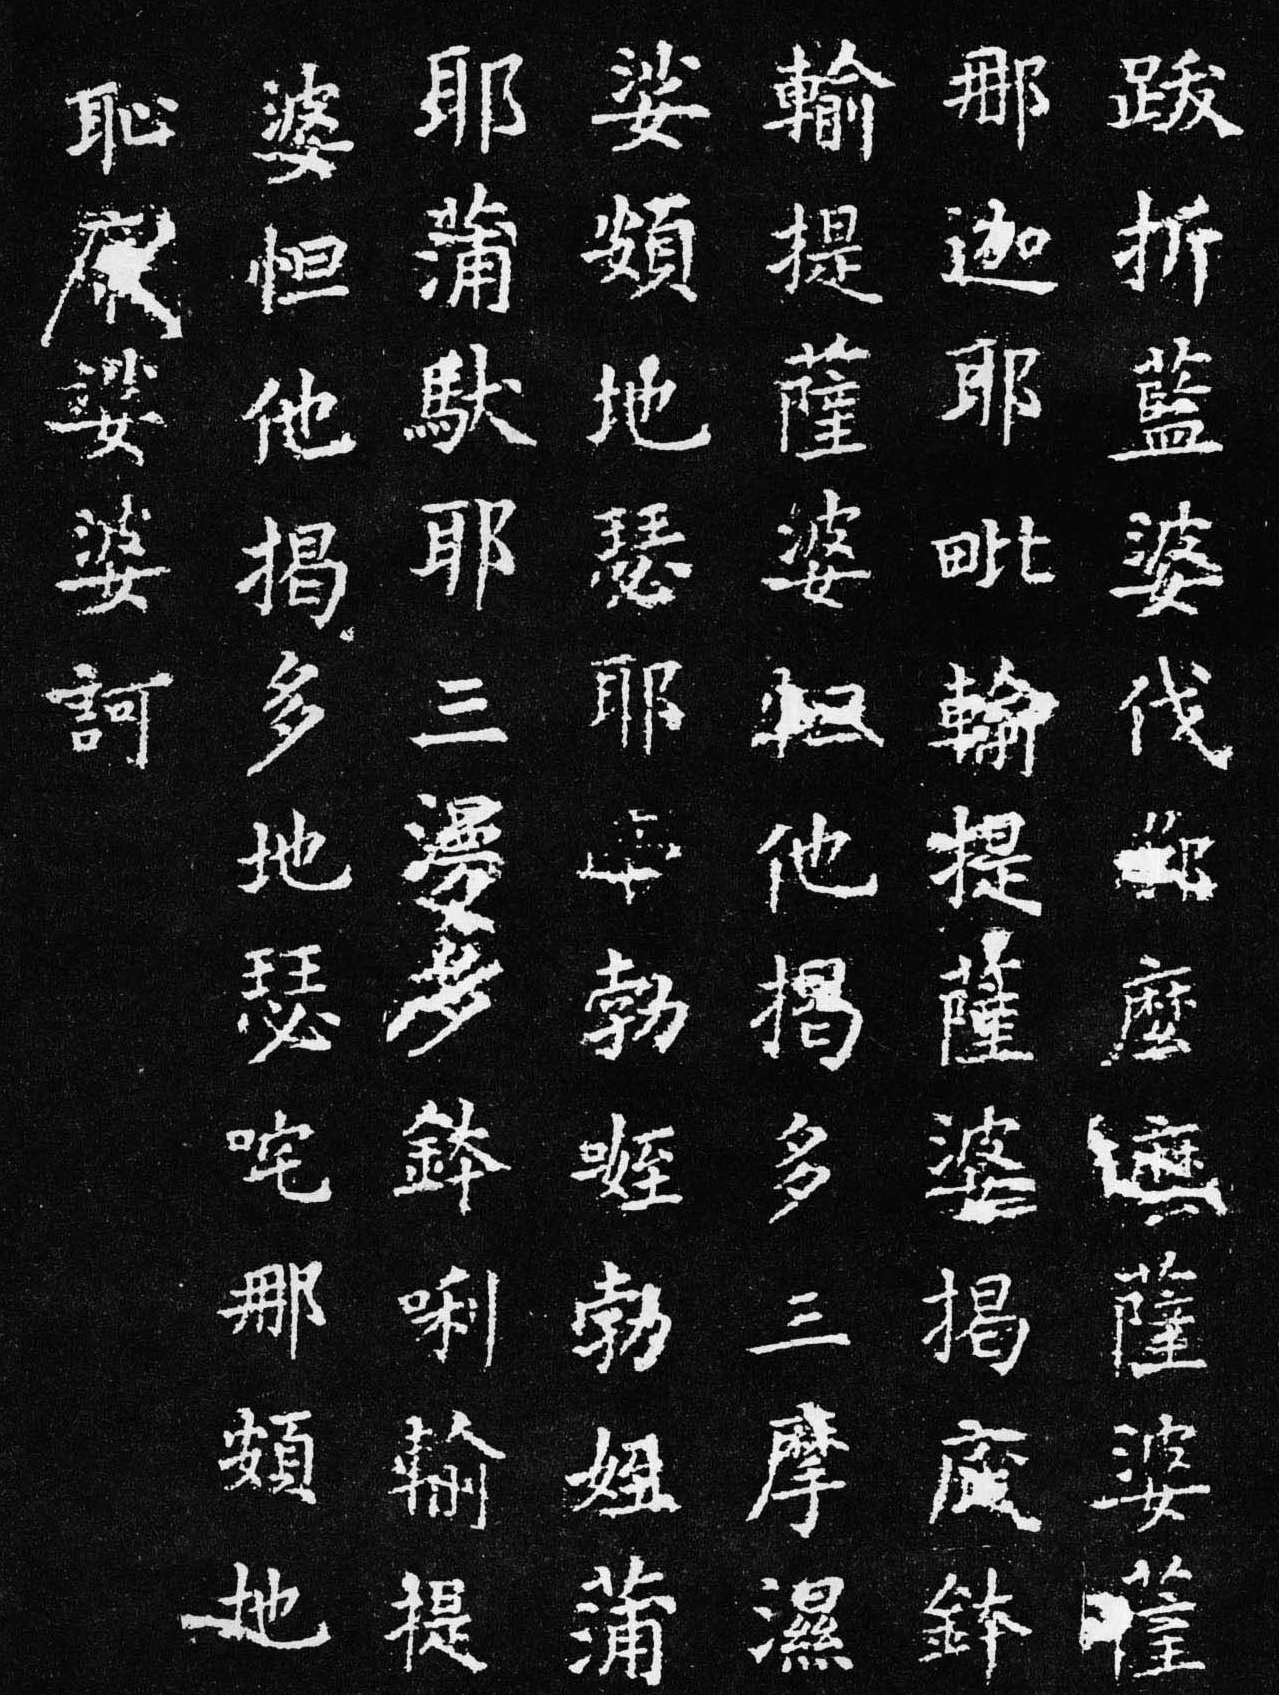 跋折藍婆伐麼薩婆薩
那迦耶毗輸提薩婆揭鉢
輸提薩婆怛他揭多三摩濕
娑頞地瑟耶勃㗌勃妲蒲
耶蒲馱耶三漫多鉢唎輸提
婆怛他揭多地瑟咤那頞地
恥娑婆訶